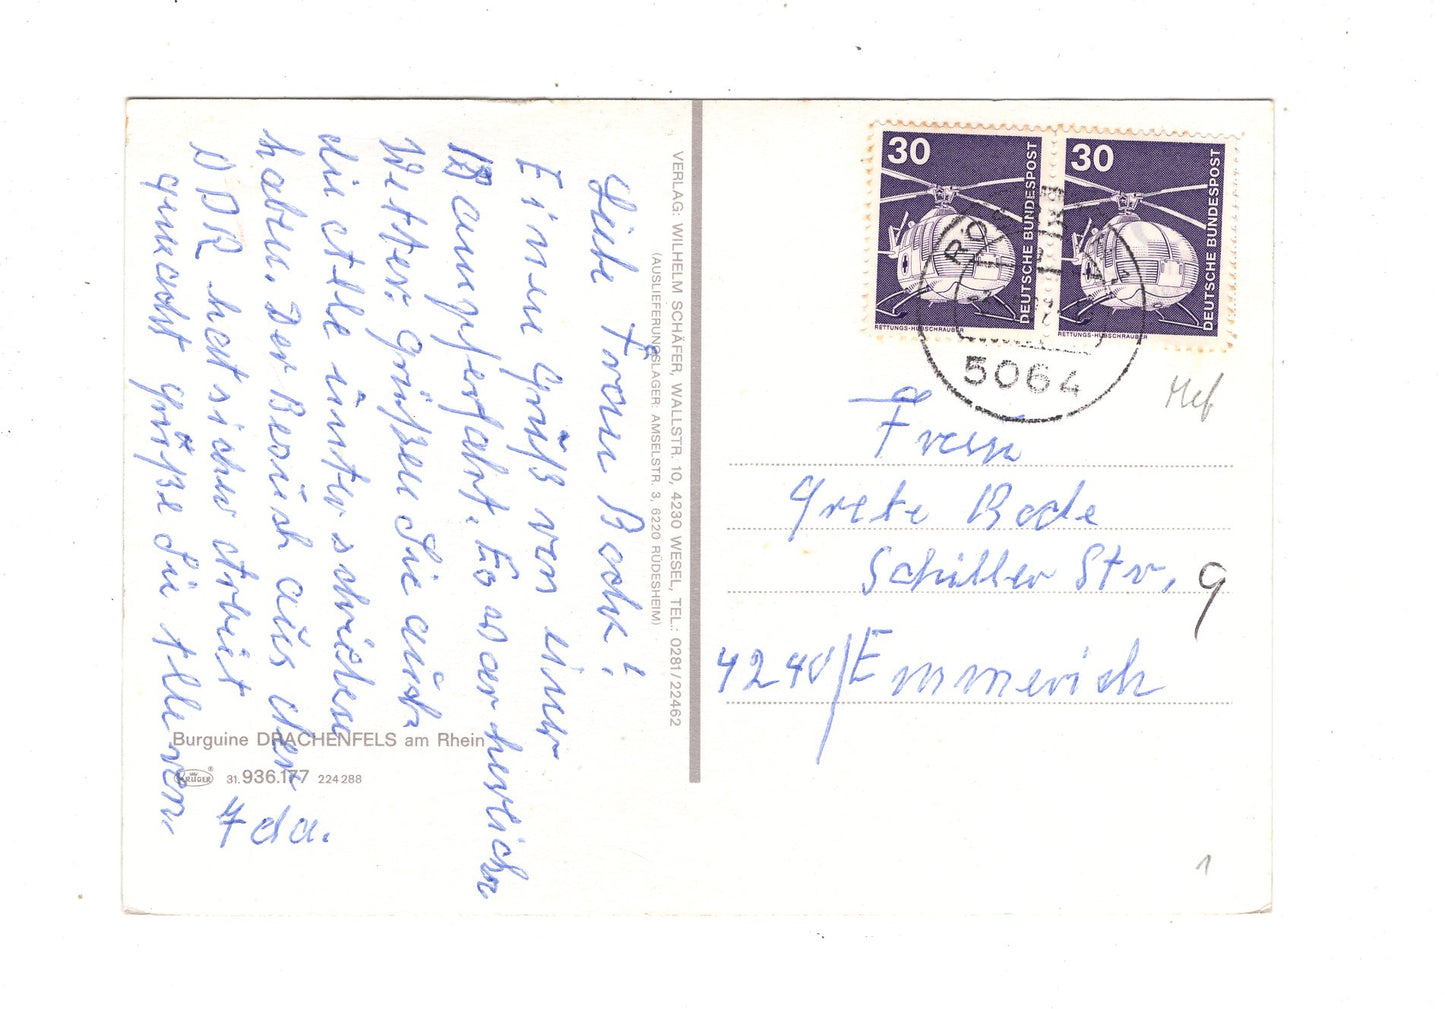 Liebe Frau Bode!
Einen Gruß von einer
Dampferfahrt. Es war herlicher
Wetter. Grüßen Sie auch
die alle unterschrieben
haben. Der Besuch aus der
DDR hat sicher Arbeit
gemacht Grüße Sie alle von,
Ada.
Burguine DRACHENFELS am Rhein
KRÜGER ®
31.936.177 224 288
VERLAG: WILHELM SCHÄFER, WALLSTR. 10, 4230 WESEL, TEL.: 0281/22462
(AUSLIEFERUNGSLAGER: AMSELSTR. 3, 6220 RÜDESHEIM)
30
DEUTSCHE BUNDESPOST
RETTUNGS-HUBSCHRAUBER
30
DEUTSCHE BUNDESPOST
RETTUNGS-HUBSCHRAUBER
5064
Frau
Grete Bode
Schiller Str, 9
4240/Emmerich
1